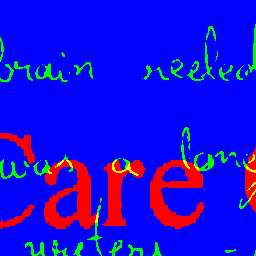 brain neeled
was a long
Care
ureters -